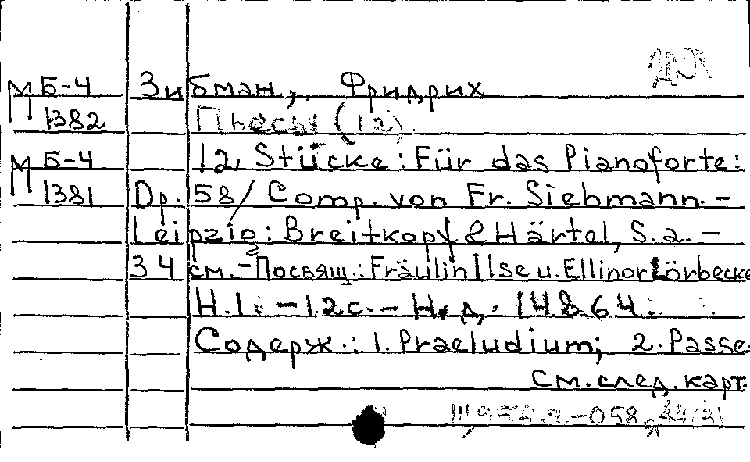 М Б-4 Зибман, Фридрих
1382 Пьесы (12).
М Б-4 12 Stücke: Für das Pianoforte:
1381 Op. 58/ Comp. von Fr. Siebmann. -
Leipzig: Breitkopf & Härtel, S. a. -
34 см. - Посвящ.: Fräulin Ilse u. Ellinor Lörbecke
H. 1. - 12 с. - Н. д. 14864.
Содерж.: 1. Praeludium; 2. Passe
См. след. карт.